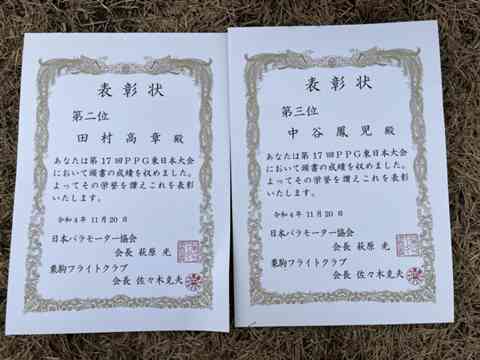 表彰状
第二位
田村高章 殿
あなたは第17回PPG東日本大会
において頭書の成績を収めました。
よってその学誉を讃えこれを表彰
いたします。
令和4年 11月20日
日本パラモーター協会
会長 萩原 光
栗駒フライトクラブ
会長 佐々木克夫
表彰状
第三位
中谷鳳児 殿
あなたは第17回PPG東日本大会
において頭書の成績を収めました。
よってその学誉を讃えこれを表彰
いたします。
令和4年 11月20日
日本パラモーター協会
会長 萩原 光
栗駒フライトクラブ
会長 佐々木克夫